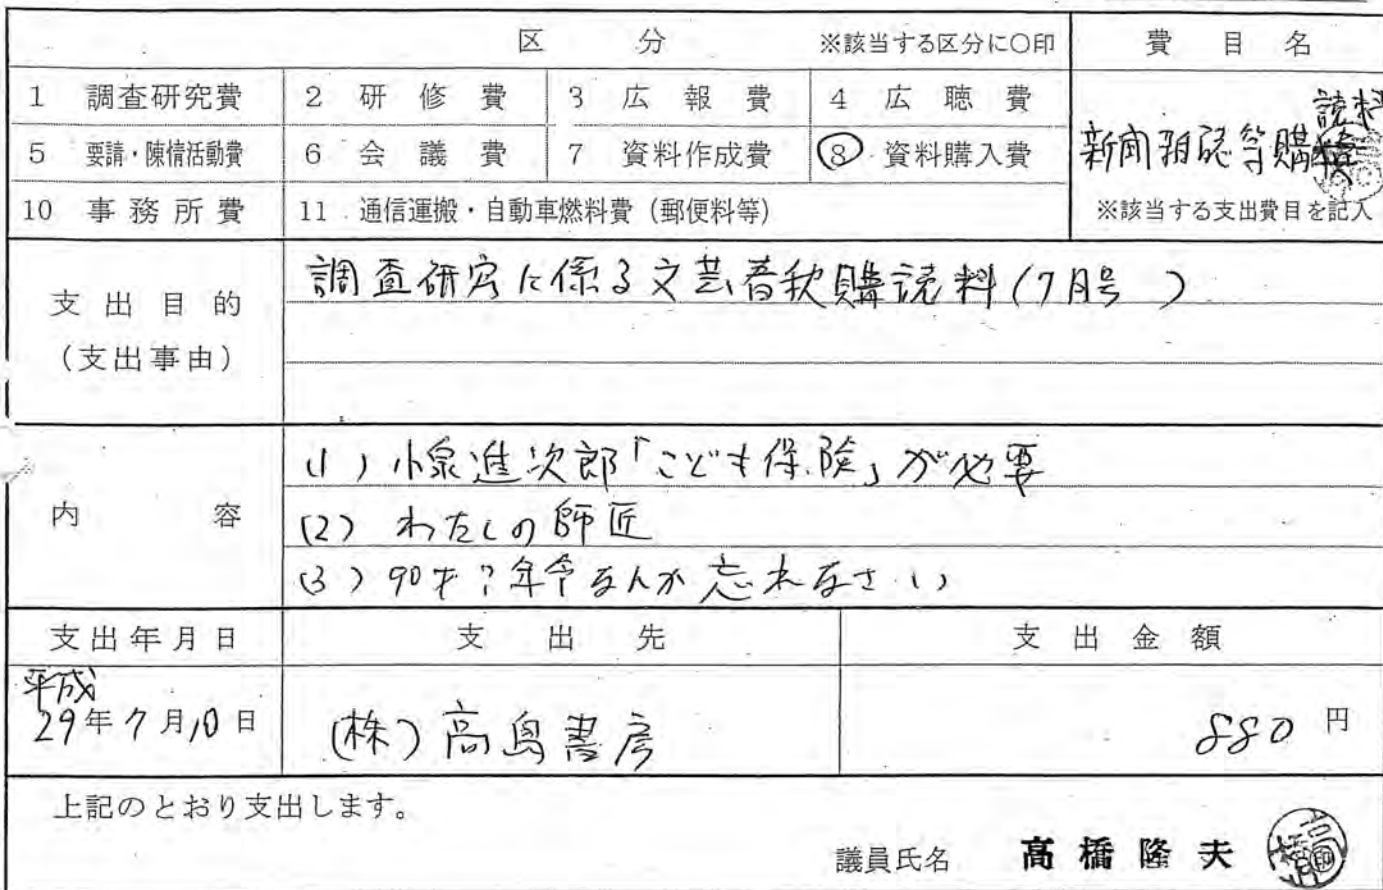 区 分 ※該当する区分に〇印 費 目 名
1 調査研究費 2 研 修 費 3 広 報 費 4 広 聴 費
5 要請・陳情活動費 6 会 議 費 7 資料作成費 ⑧ 資料購入費
読料
新聞雑誌等購
10 事 務 所 費 11 通信運搬・自動車燃料費(郵便料等) ※該当する支出費目を記入
支 出 目 的
(支出事由)
調査研究に係る文芸春秋購読料(7月号 )
内 容
(1) 小泉進次郎「こども保険」が必要
(2) わたしの師匠
(3) 90才?年令なんか忘れなさい
支出年月日 支 出 先 支 出 金 額
平成
29年7月10日 (株)高島書房 880 円
上記のとおり支出します。
議員氏名 髙橋隆夫